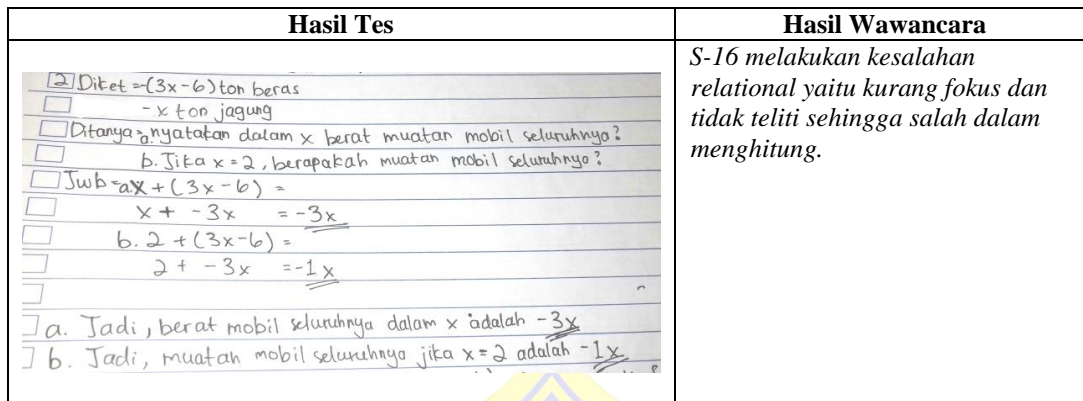 Hasil Tes
Hasil Wawancara
2 Diket = -(3x-6) ton beras
- x ton jagung
Ditanya = a. nyatakan dalam x berat muatan mobil seluruhnya?
b. Jika x = 2, berapakah muatan mobil seluruhnya?
Jwb = a. x + (3x-6) =
x + -3x = -3x
b. 2 + (3x-6) =
2 + -3x = -1x
a. Jadi, berat mobil seluruhnya dalam x adalah -3x
b. Jadi, muatan mobil seluruhnya jika x = 2 adalah -1x
S-16 melakukan kesalahan
relational yaitu kurang fokus dan
tidak teliti sehingga salah dalam
menghitung.